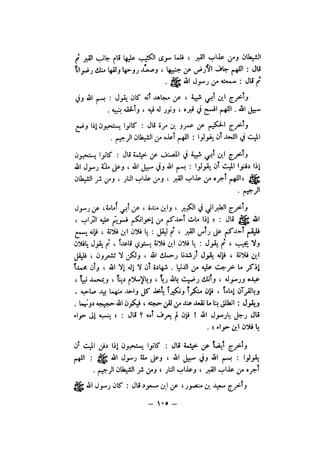 الشيطان ومن عذاب القبر ، فلما سوى الكثيب عليها قام جانب القبر ثم
قال : اللهم جاف الأرض عن جنبيها ، وصعّد روحها ولقها منك رضواناً
ثم قال : سمعته من رسول الله ﷺ .
وأخرج ابن أبي شيبة ، عن مجاهد أنه كان يقول : بسم الله وفي
سبيل الله . اللهم افسح في قبره ، ونور له فيه ، وألحقه بنبيه .
وأخرج الحكيم عن عمرو بن مرة قال : كانوا يستحبون إذا وضع
الميت في اللحد أن يقولوا : اللهم أعذه من الشيطان الرجيم .
وأخرج ابن أبي شيبة في المصنف عن خيثمة قال : كانوا يستحبون
إذا دفنوا الميت أن يقولوا : بسم الله وفي سبيل الله ، وعلى ملة رسول الله
ﷺ ، اللهم أجره من عذاب القبر ، ومن عذاب النار ، ومن شر الشيطان
الرجيم .
وأخرج الطبراني في الكبير ، وابن مندة ، عن أبي أمامة ، عن رسول
الله ﷺ قال : « إذا مات أحدكم من إخوانكم فسويتم عليه التراب ،
فليقم أحدكم على رأس القبر ، ثم ليقل : يا فلان ابن فلانة ، فإنه يسمع
ولا يجيب ، ثم يقول : يا فلان ابن فلانة يستوي قاعداً ، ثم يقول يافلان
ابن فلانة ، فإنه يقول أرشدنا رحمك الله ، ولكن لا تشعرون ، فليقل
إذكر ما خرجت عليه من الدنيا . شهادة أن لا إله إلا الله ، وأن محمداً
عبده ورسوله ، وأنك رضيت بالله رباً ، وبالإسلام ديناً ، وبمحمد نبياً ،
وبالقرآن إماماً ، فإن منكراً ونكيراً يأخذ كل واحد منهما بيد صاحبه .
ويقول : انطلق بنا ما نقعد عند من لقن حجته ، فيكون الله حجيجه دونهما .
قال رجل يارسول الله ! فإن لم يعرف أمه ؟ قال : « ينسبه إلى حواء
يا فلان ابن حواء » .
وأخرج أيضاً عن خيثمة قال : كانوا يستحبون إذا دفن الميت أن
يقولوا : بسم الله وفي سبيل الله ، وعلى ملة رسول الله ﷺ : اللهم
أجره من عذاب القبر ، وعذاب النار ، ومن شر الشيطان الرجيم .
وأخرج سعيد بن منصور ، عن ابن مسعود قال : كان رسول الله ﷺ
– ١٠٥ –